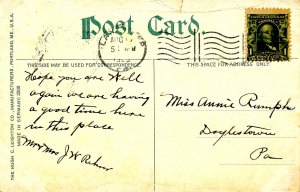 Post Card.
AUG
THIS SIDE MAY BE USED FOR CORRESPONDENCE
THIS SPACE FOR ADDRESS
THE HUGH C. LEIGHTON CO., MANUFACTURERS, PORTLAND, ME., U.S.A.
MADE IN GERMANY
Hope you are Well
again we are having
a good time here
in this place
Mr & Mrs J W
Miss Annie Rumph
Doylestown
Pa